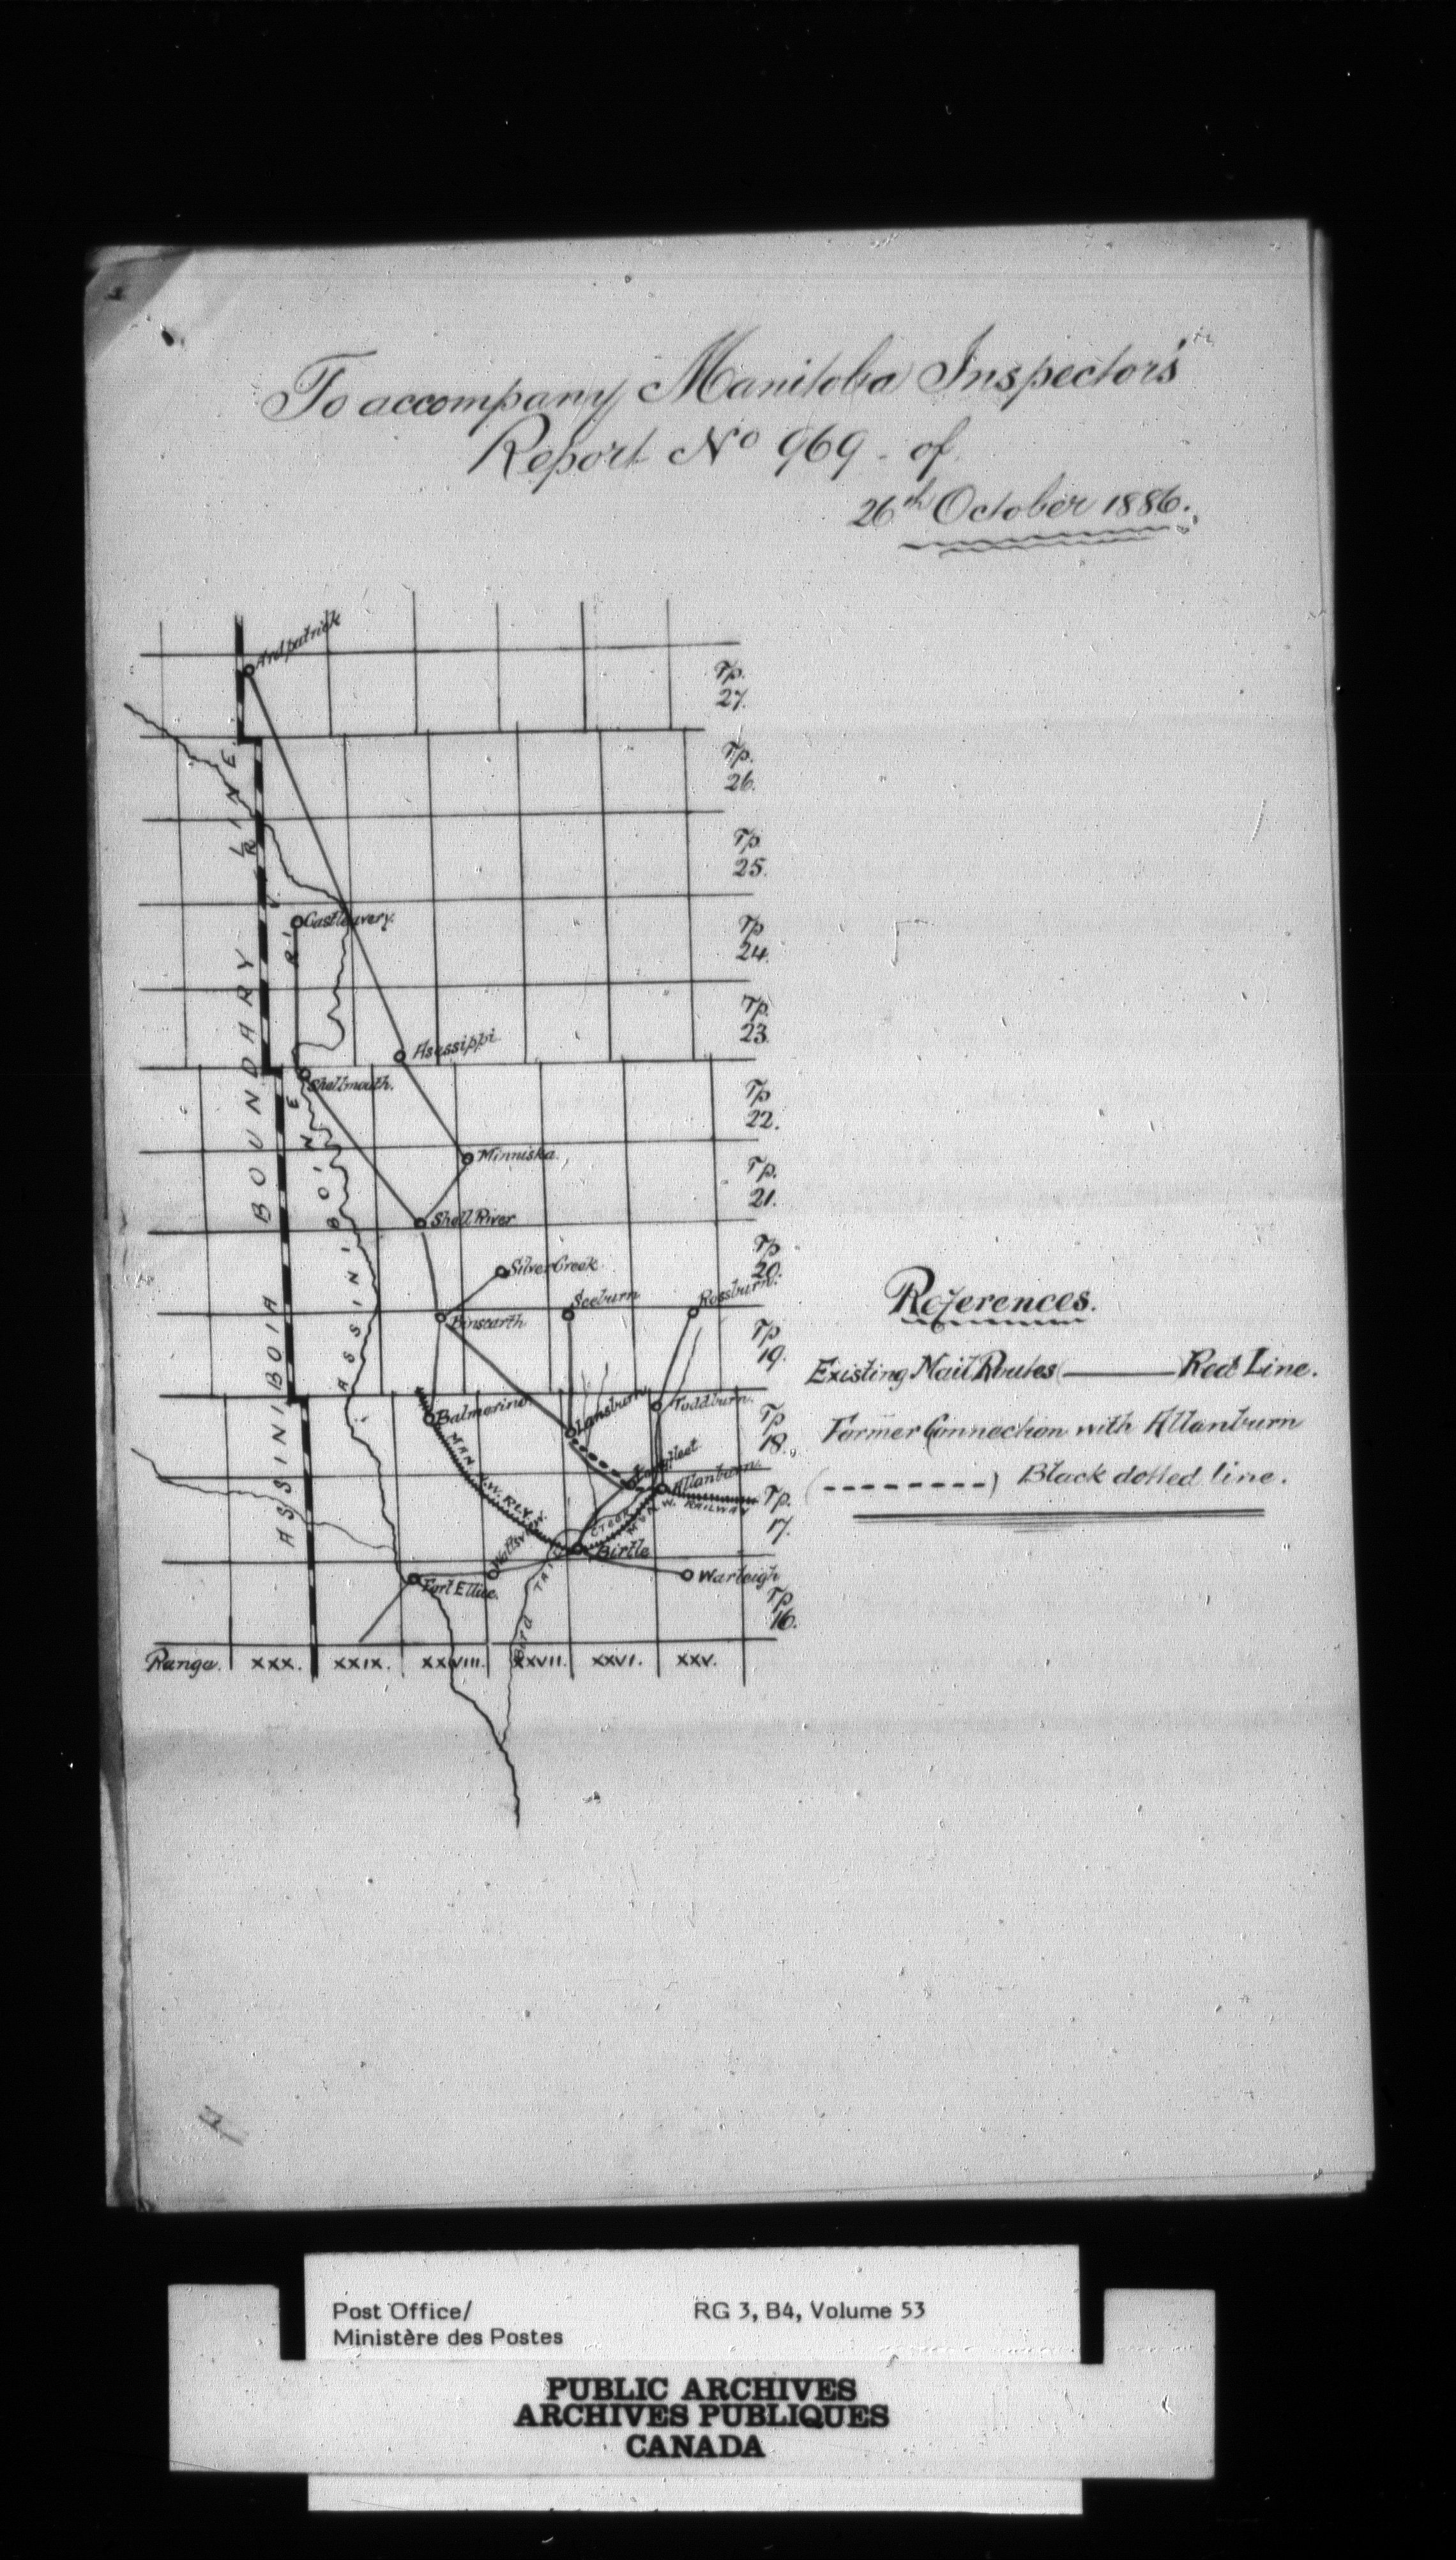 To accompany Manitoba Inspector's
Report No 969 - of
26th October 1886.
Ardpatrick
Tp. 27.
Tp. 26.
Tp 25.
Castleavery.
Tp 24.
Tp. 23.
Asessippi
Shellmouth.
Tp 22.
Minniska.
Tp. 21.
Shell River
Tp 20.
Silver Creek
Seeburn
Rossburn.
Binscarth
Tp 19.
Balmerino
Lansburn
Toddburn.
Tp 18.
Allanburn.
MAN. N.W. RLY.
M. & N. W. RAILWAY
Tp. 17.
Birtle
Fort Ellice.
Warleigh
Tp 16.
BIRD TAIL CREEK
ASSINIBOINE RIVER
ASSINIBOIA BOUNDARY LINE
Range. XXX. XXIX. XXVIII. XXVII. XXVI. XXV.
References.
Existing Mail Routes (——— Red Line.
Former Connection with Allanburn
(--------) Black dotted line.
Post Office/
Ministère des Postes
RG 3, B4, Volume 53
PUBLIC ARCHIVES
ARCHIVES PUBLIQUES
CANADA